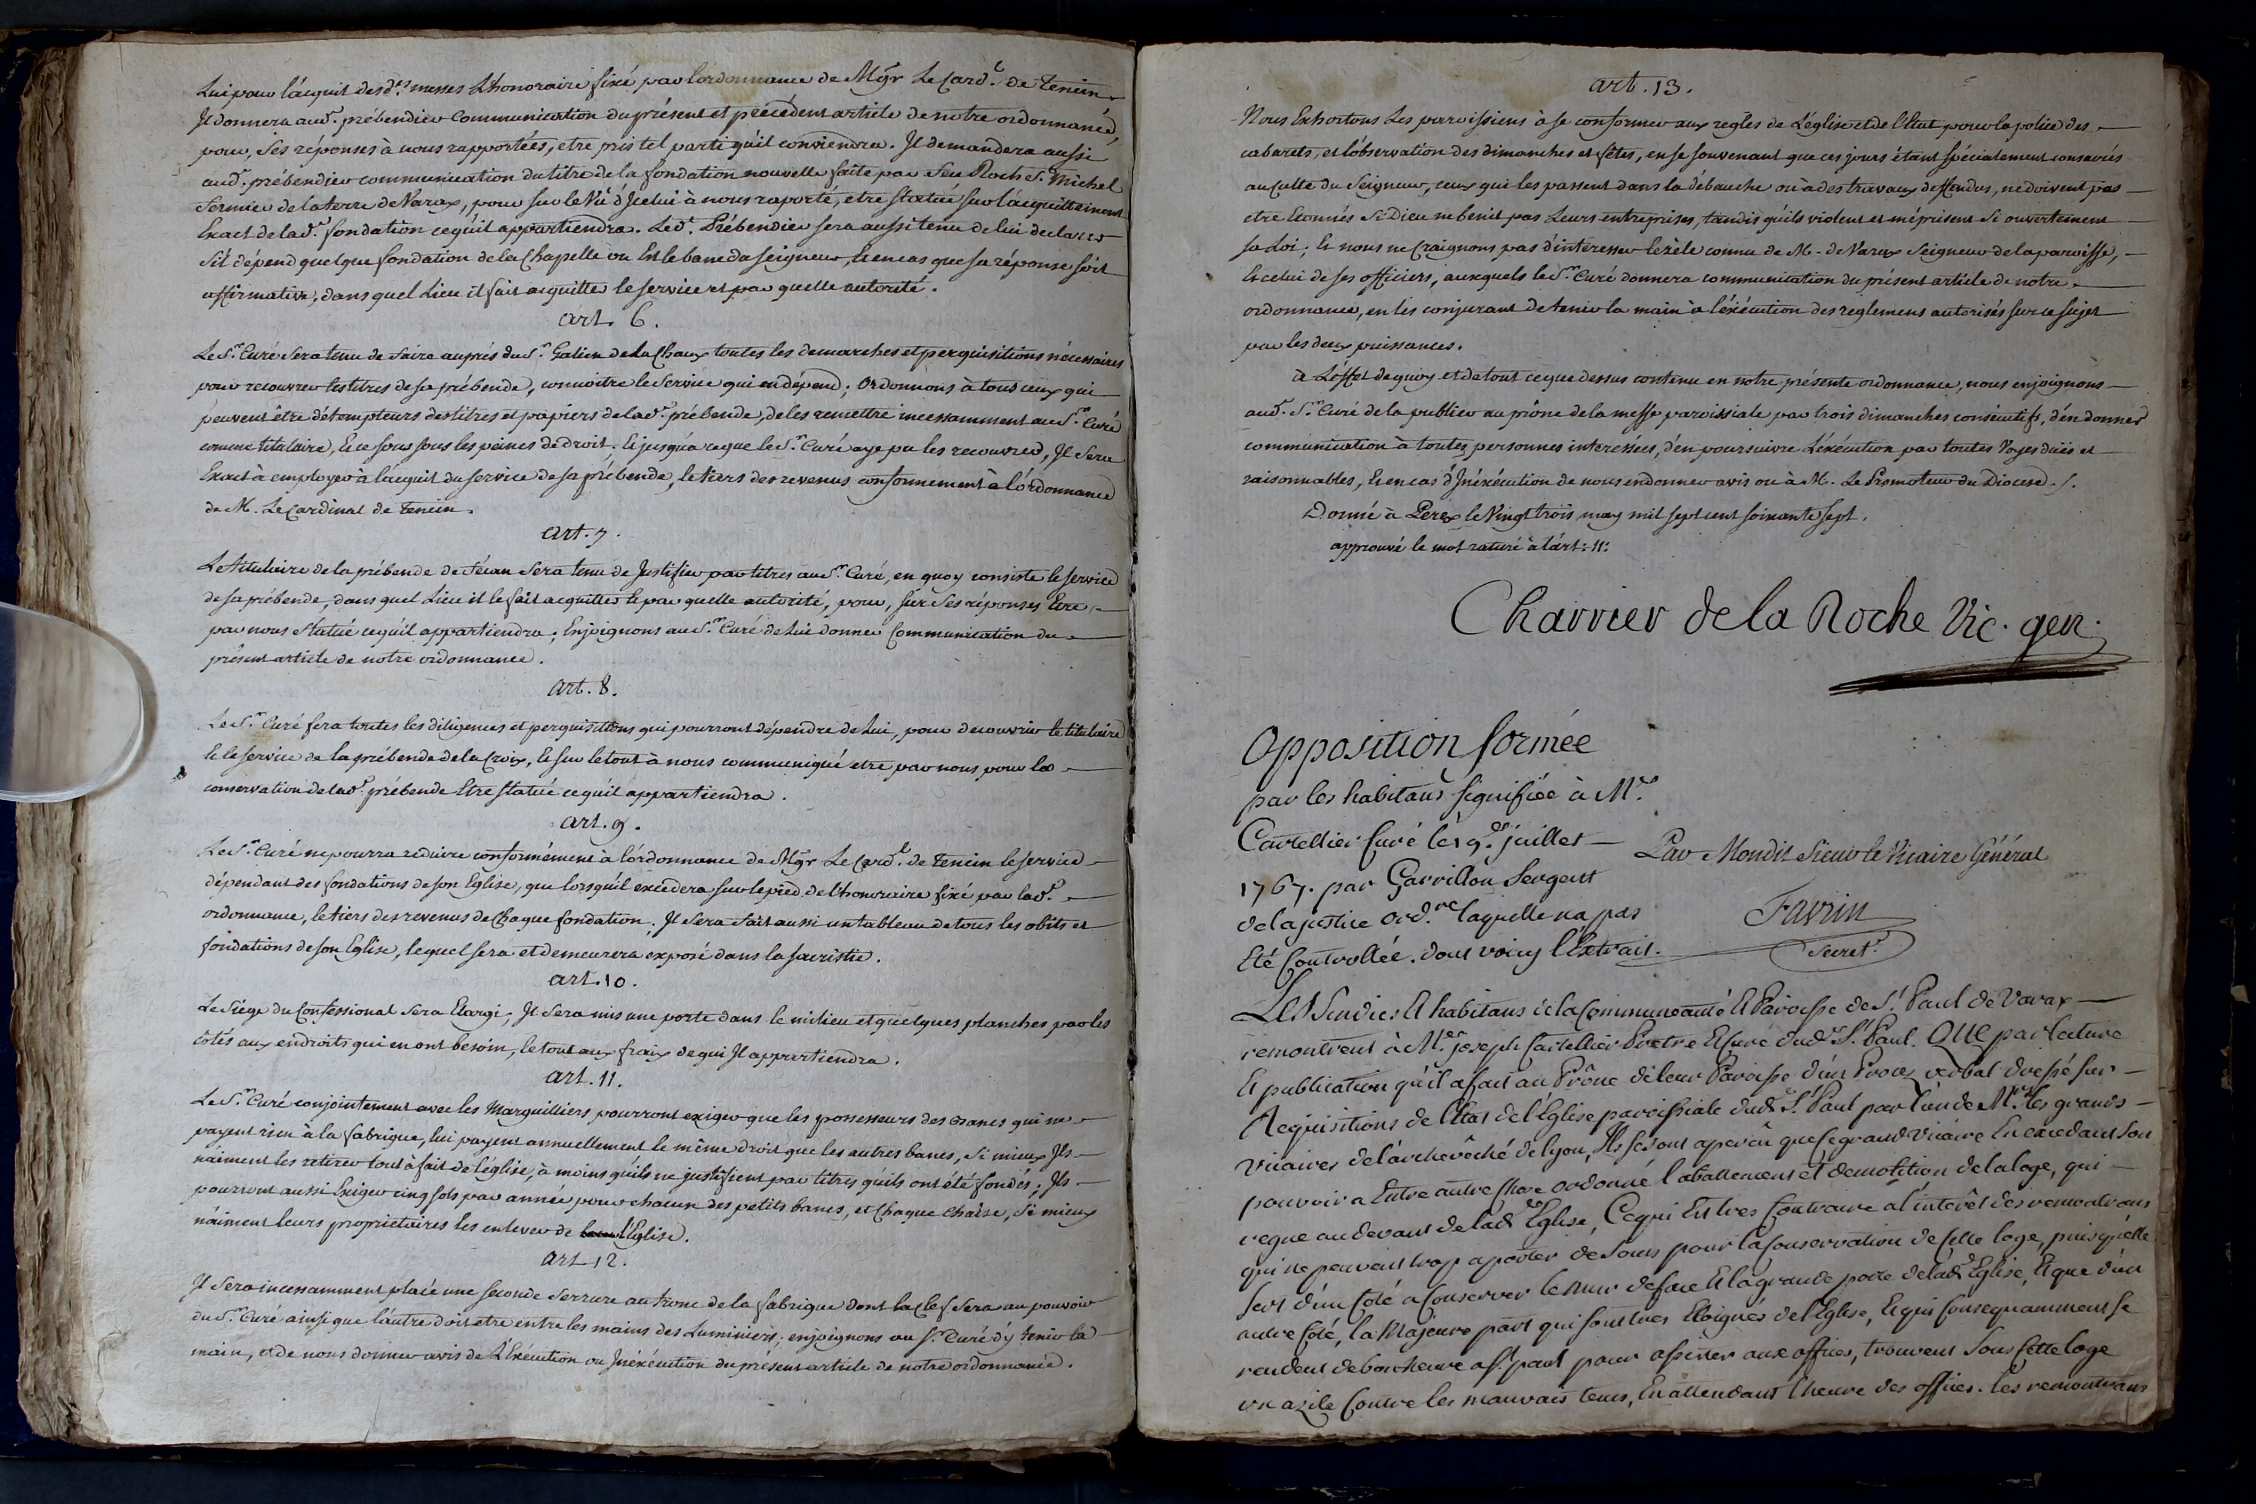 Lui pour l'acquit desd.es messes L'honoraire fixé par l'ordonnance de Mgr Le Card.l de Tencin
Il donnera aud.t prébendier communication du présent et précédent article de notre ordonnance,
pour, ses réponses à nous rapportées, etre pris tel parti qu'il conviendra. Il demandera aussi
aud.t prébendier communication du titre de la fondation nouvelle faite par feu Roch St. Michel
fermier de la terre de Varax, pour sur le Vû d'Icelui à nous raporté, etre statué sur l'acquittement
Exact de lad.e fondation ce qu'il appartiendra. Led.t Prébendier sera aussi tenu de lui declarer
s'il dépend quelque fondation de la Chapelle ou Est le banc du seigneur, & en cas que sa réponse soit
affirmative, dans quel Lieu il fait acquitter le service et par quelle autorité.
art. 6.
Le Sr. Curé sera tenu de faire auprés du Sr. Galien de La Chaux toutes les demarches et perquisitions nécessaires
pour recouvrer les titres de sa prébende, connoitre le Service qui en dépend; ordonnons à tous ceux qui
peuvent être détempteurs des titres et papiers de lad.e prébende, de les remettre incessamment au Sr. Curé
comme titulaire, & ce sous les peines de Droit, & jusqu'à ce que le Sr. Curé aye pu les recouvrer, Il Sera
Exact à employer à l'acquit du service de sa prébende, le tiers des revenus conformement à l'ordonnance
de M. Le Cardinal de Tencin.
art. 7.
Le titulaire de la prébende de sera tenu de Justifier par titres au Sr. Curé, en quoy consiste le service
de sa prébende, dans quel Lieu il le fait acquitter & par quelle autorité, pour, sur ses réponses Etre
par nous Statué ce qu'il appartiendra; Enjoignons au Sr. Curé de Lui donner Communication du
présent article de notre ordonnance.
art. 8.
Le Sr. Curé fera toutes les diligences et perquisitions qui pourront dépendre de Lui, pour decouvrir le titulaire
& le service de la prébende de la Croix, & sur le tout à nous communiqué etre par nous pour la
conservation de lad.e prébende Etre statué ce qu'il appartiendra.
art. 9.
Le Sr. Curé ne pourra reduire conformément à l'ordonnance de Mgr Le Card.l de Tencin le service
dépendant des fondations de son Eglise, que lorsqu'il excedera sur le pied de l'honoraire fixé par lad.e
ordonnance, le tiers des revenus de Chaque fondation. Il Sera fait aussi un tableau de tous les obits et
fondations de son Eglise, lequel sera et demeurera exposé dans la sacristie.
art. 10.
Le Siége du Confessional sera Elargi; Il Sera mis une porte dans le milieu et quelques planches par les
cotés aux endroits qui en ont besoin, le tout aux fraix de qui Il appartiendra.
art. 11.
Le Sr. Curé conjointement avec les Marguilliers pourront exiger que les possesseurs des bancs qui ne
payent rien à la fabrique, lui payent annuellement le même droit que les autres bancs, si mieux Ils
n'aiment les retirer tout à fait de l'église, à moins qu'ils ne justifient par titres qu'ils ont été fondés; Ils
pourront aussi Exiger cinq sols par année pour chacun des petits bancs, et Chaque Chaise, si mieux
n'aiment leurs proprietaires les enlever de l'Eglise.
art. 12.
Il sera incessamment placé une seconde serrure au tronc de la fabrique dont la Clef sera au pouvoir
du Sr. Curé ainsi que l'autre doit etre entre les mains des Luminiers; enjoignons au Sr. Curé d'y tenir la
main, et de nous donner avis de L'Exécution ou Inéxécution du présent article de notre ordonnance.
art. 13.
Nous Exhortons Les paroissiens à se conformer aux regles de L'église et de l'Etat pour la police des
cabarets, et l'observation des dimanches et fêtes, en se souvenant que ces jours étant spécialement consacrés
au culte du Seigneur, ceux qui les passent dans la débauche ou à des travaux deffendus, ne doivent pas
etre Etonnés si Dieu ne benit pas Leurs entreprises, tandis qu'ils violent et méprisent si ouvertement
sa Loi; & nous ne craignons pas d'interesser le zèle connu de M. de Varax Seigneur de la paroisse,
& celui de ses officiers, auxquels le Sr. Curé donnera communication du présent article de notre
ordonnance, en les conjurant de tenir la main à l'éxécution des reglemens autorisés sur ce sujet
par les deux puissances.
à L'effet de quoy et de tout ce que dessus contenu en notre présente ordonnance, nous enjoignons
aud.t Sr. Curé de la publier au prône de la messe paroissiale par trois dimanches consécutifs, d'en donner
communication à toutes personnes interessées, d'en poursuivre L'éxécution par toutes Voyes dües et
raisonnables, & en cas d'Inéxécution de nous en donner avis ou à M. Le Promoteur du Diocese ./.
Donné à Perex le Vingt trois may mil sept cent soixante sept.
approuvé le mot raturé à l'art: 11:
Charrier de la Roche Vic. gen.
Opposition formée
par les habitans signifiée à Mre.
Cartellier Curé le 19.e juillet
1767. par Garrillon Sergent
de la justice ord.re laquelle n'a pas
Eté Controllée. dont voicy l'Extrait.
Par Mondit Sieur le Vicaire Général
Favrin
Secret.
Les Sindics Et habitans de la Communeauté Et Paroisse de St. Paul de Varax
remontrent à Mre. joseph Cartellier Pretre Et Curé dud. St. Paul. Que par lecture
Et publication qu'il a fait au Prône de leur Paroisse d'un Proces verbal dressé sur
Requisitions de l'Etat de l'Eglise paroissiale dud. St. Paul par l'un de Mrs. les grands
vicaires de l'archevêché de lyon, Ils se sont aperçû que ce grand vicaire En excedant son
pouvoir a Entre autre chose ordonné l'abattement et demolition de la loge, qui
regne au devant de lad.te Eglise, Ce qui Est tres Contraire a l'intérêt des remontrans
qui ne peuvent trop aporter de soins pour la Conservation de Cette loge, puisqu'elle
sert d'un Coté a Conserver le mur de face Et la grande porte de lad. Eglise, Et que d'un
autre Coté, la Majeure part qui sont tres Eloignés de l'Eglise, Et qui Consequamment se
rendent de bonheure a St. paul pour assister aux offices, trouvent sous Cette loge
un azile Contre les mauvais tems, En attendant l'heure des offices. les remontrans